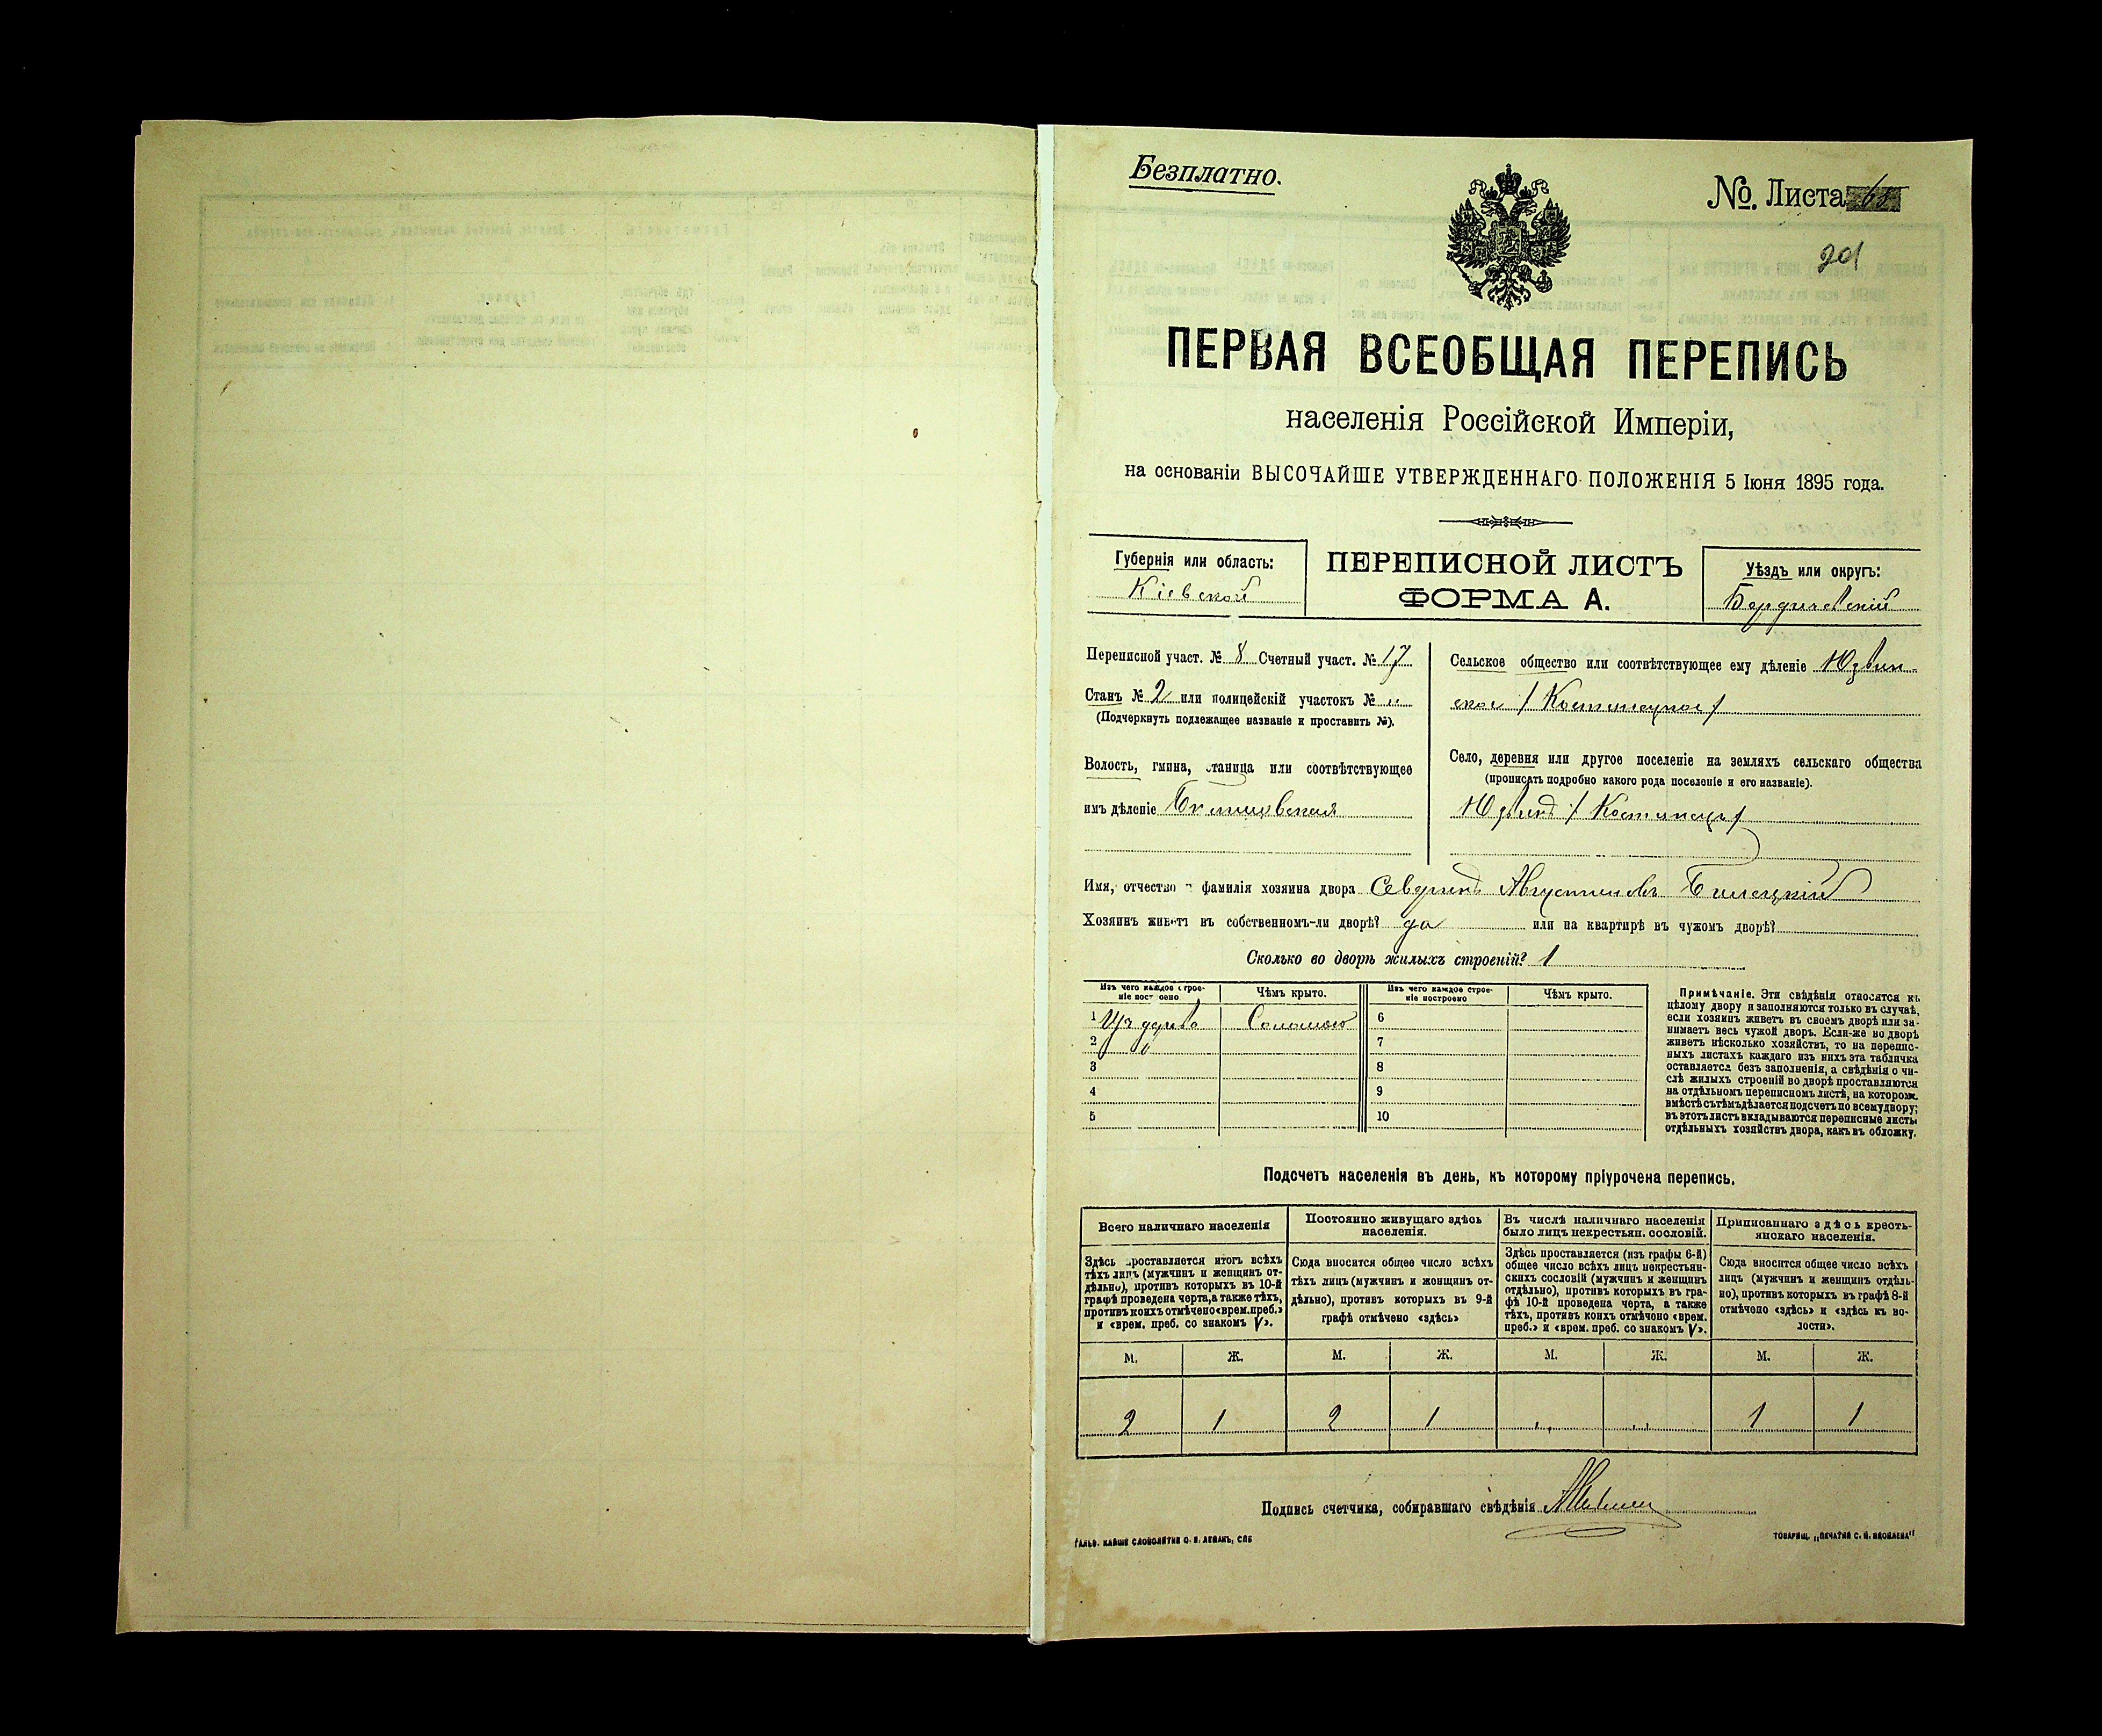 Безплатно.
№. Листа 68
201
ПЕРВАЯ ВСЕОБЩАЯ ПЕРЕПИСЬ
населенія Россійской Имперіи,
на основаніи ВЫСОЧАЙШЕ УТВЕРЖДЕННАГО ПОЛОЖЕНІЯ 5 Іюня 1895 года.
Губернія или область:
Кіевской
ПЕРЕПИСНОЙ ЛИСТЪ
ФОРМА А.
Уѣздъ или округъ:
Бердичевскій
Переписной участ. № 8 Счетный участ. № 17
Станъ № 2 или полицейскій участокъ № "
(Подчеркнуть подлежащее названіе и проставить №).
Волость, гмина, станица или соотвѣтствующее
имъ дѣленіе
Сельское общество или соотвѣтствующее ему дѣленіе Юзвин-
ское / Костинецкое /
Село, деревня или другое поселеніе на земляхъ сельскаго общества
(прописать подробно какого рода поселеніе и его названіе).
Юзвинъ / Костинецъ /
Имя, отчество и фамилія хозяина двора Северинъ Августиновъ Билецкій
Хозяинъ живетъ въ собственномъ-ли дворѣ? да или на квартирѣ въ чужомъ дворѣ?
Сколько во дворѣ жилыхъ строеній? 1
Изъ чего каждое строе-
ніе построено
Чѣмъ крыто.
Изъ чего каждое строе-
ніе построено
Чѣмъ крыто.
1 Изъ дерева Соломою 6
2 7
3 8
4 9
5 10
Примѣчаніе. Эти свѣдѣнія относятся къ
цѣлому двору и заполняются только въ случаѣ,
если хозяинъ живетъ въ своемъ дворѣ или за-
нимаетъ весь чужой дворъ. Если-же во дворѣ
живетъ нѣсколько хозяйствъ, то на перепис-
ныхъ листахъ каждаго изъ нихъ эта табличка
оставляется безъ заполненія, а свѣдѣнія о чи-
слѣ жилыхъ строеній во дворѣ проставляются
на отдѣльномъ переписномъ листѣ, на которомъ
вмѣстѣ съ тѣмъ дѣлается подсчетъ по всему двору;
въ этотъ листъ вкладываются переписные листы
отдѣльныхъ хозяйствъ двора, какъ въ обложку.
Подсчетъ населенія въ день, къ которому пріурочена перепись.
Всего наличнаго населенія
Здѣсь проставляется итогъ всѣхъ
тѣхъ лицъ (мужчинъ и женщинъ от-
дѣльно), противъ которыхъ въ 10-й
графѣ проведена черта, а также тѣхъ,
противъ коихъ отмѣчено «врем. преб.»
и «врем. преб. со знакомъ V».
Постоянно живущаго здѣсь
населенія.
Сюда вносится общее число всѣхъ
тѣхъ лицъ (мужчинъ и женщинъ от-
дѣльно), противъ которыхъ въ 9-й
графѣ отмѣчено «здѣсь»
Въ числѣ наличнаго населенія
было лицъ некрестьян. сословій.
Здѣсь проставляется (изъ графы 6-й)
общее число всѣхъ лицъ некрестьян-
скихъ сословій (мужчинъ и женщинъ
отдѣльно), противъ которыхъ въ гра-
фѣ 10-й проведена черта, а также
тѣхъ, противъ коихъ отмѣчено «врем.
преб.» и «врем. преб. со знакомъ V».
Приписаннаго здѣсь кресть-
янскаго населенія.
Сюда вносится общее число всѣхъ
лицъ (мужчинъ и женщинъ отдѣль-
но), противъ которыхъ въ графѣ 8-й
отмѣчено «здѣсь» и «здѣсь въ во-
лости».
М. Ж. М. Ж. М. Ж. М. Ж.
2 1 2 1 " " 1 1
Подпись счетчика, собиравшаго свѣдѣнія